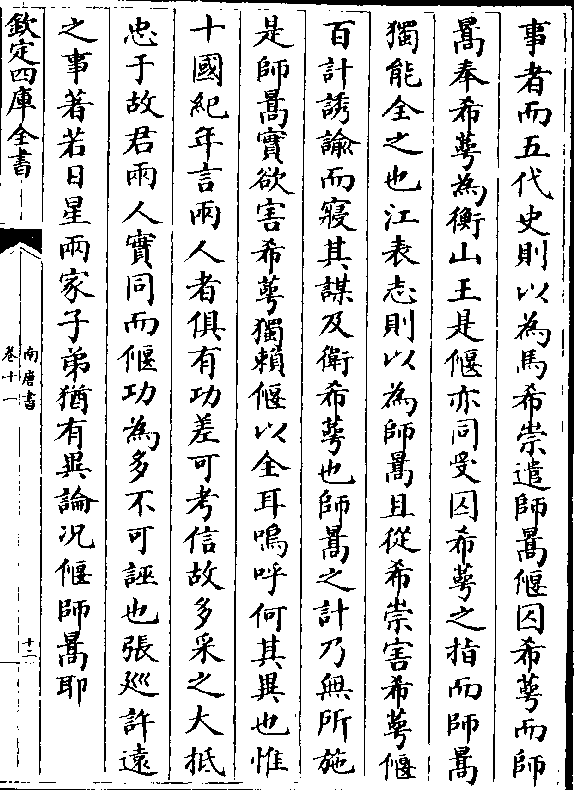 事者而五代史則以為馬希崇遣師暠偃囚希萼而師
暠奉希萼為衡山王是偃亦同受囚希萼之指而師暠
獨能全之也江表志則以為師暠且從希崇害希萼偃
百計誘諭而寢其謀及衛希萼也師暠之計乃無所施
是師暠實欲害希萼獨賴偃以全耳嗚呼何其異也惟
十國紀年言兩人者俱有功差可考信故多采之大抵
忠于故君兩人實同而偃功為多不可誣也張廵許遠
之事著若日星兩家子弟猶有異論况偃師暠耶
欽定四庫全書
南唐書
卷十一
十二